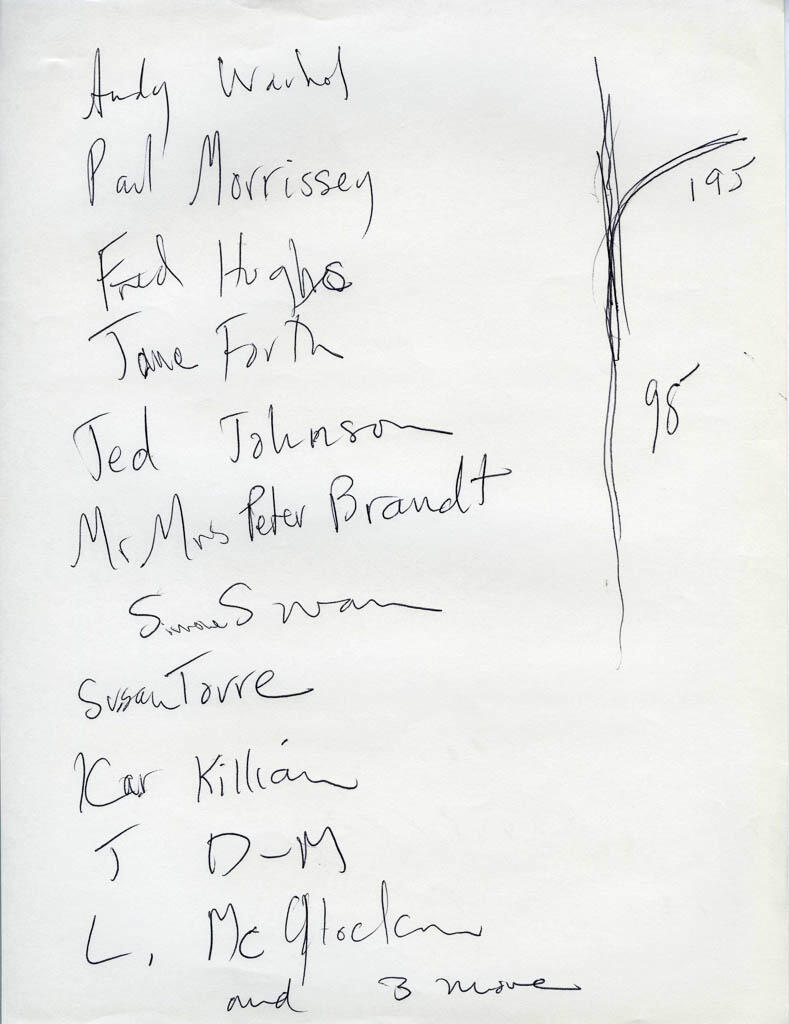 Andy Warhol
Paul Morrissey
195
Fred Hughs
Jane Forth
98
Jed Johnson
Mr. Mrs Peter Brandt
Simone Swan
Susan Torre
Kar Killian
J D-M
L. Mc
and 3 more